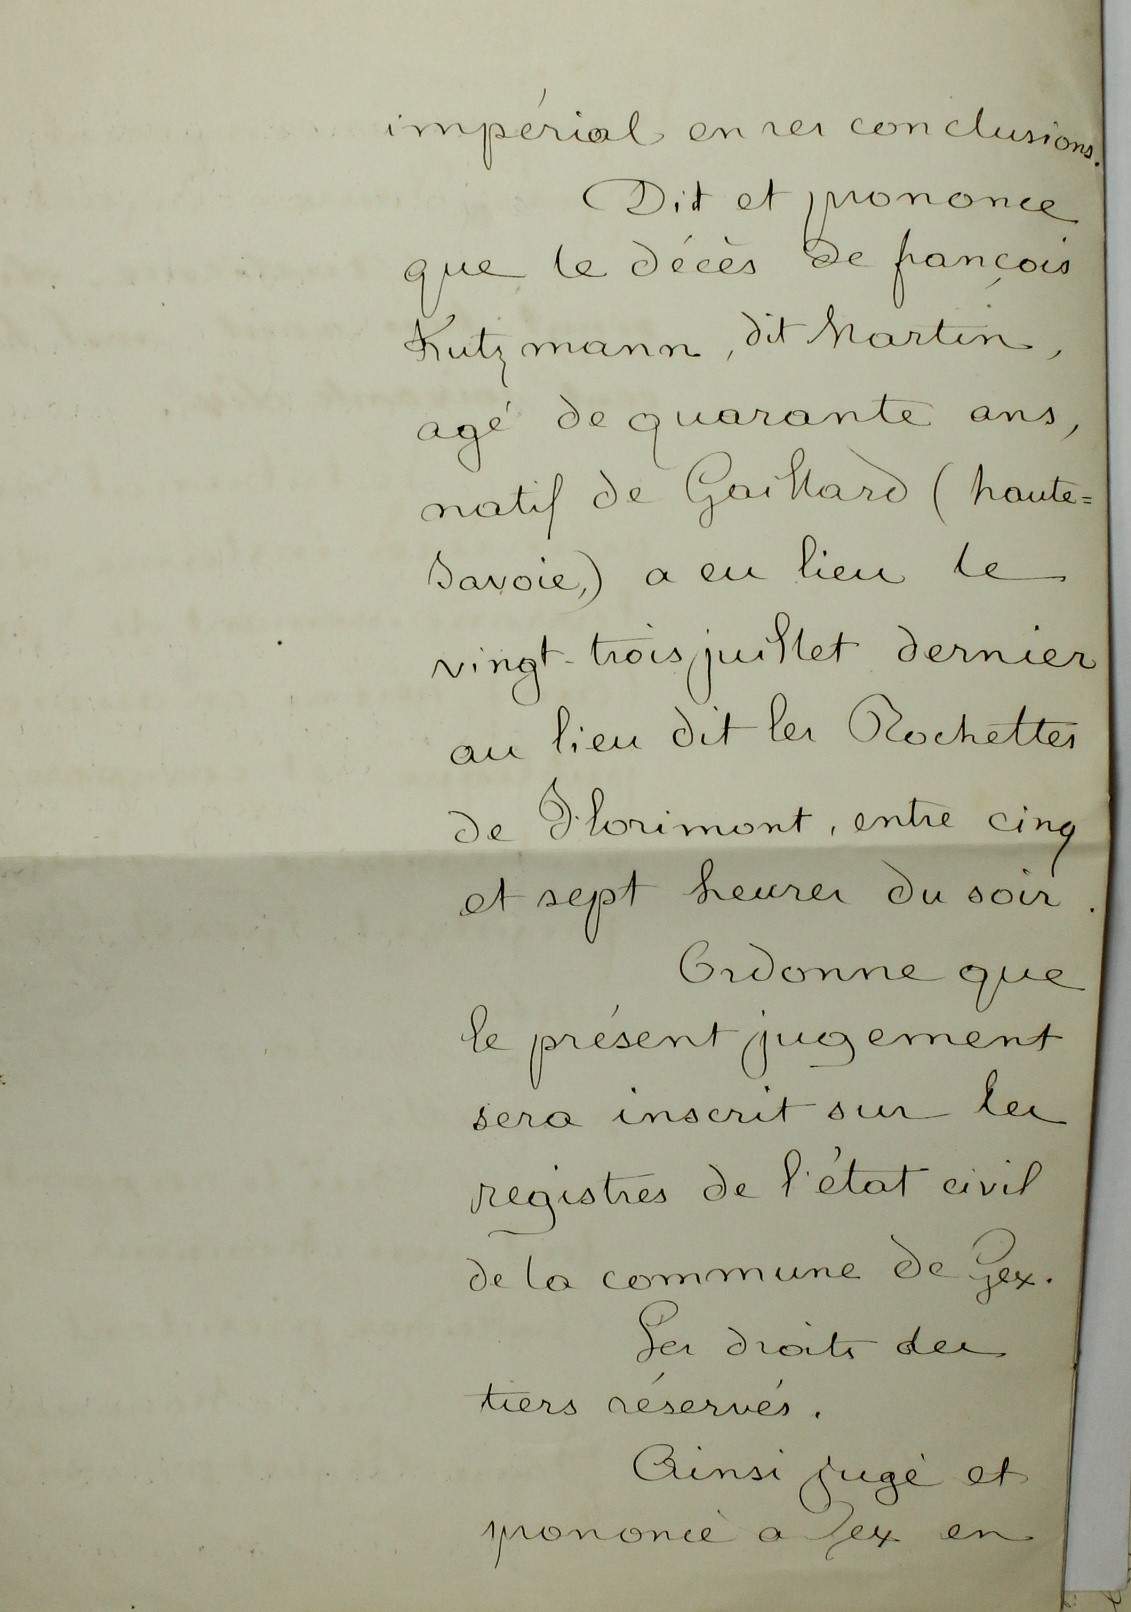 impérial en ses conclusions.
Dit et prononce
que le décès de françois
Kutzmann, dit Martin,
agé de quarante ans,
natif de Gaillard (haute=
Savoie,) a eu lieu le
vingt-trois juillet dernier
au lieu dit les Rochettes
de Florimont, entre cinq
et sept heures du soir.
Ordonne que
le présent jugement
sera inscrit sur les
registres de l'état civil
de la commune de Gex.
Les droits des
tiers réservés.
Ainsi jugé et
prononcé a Gex en